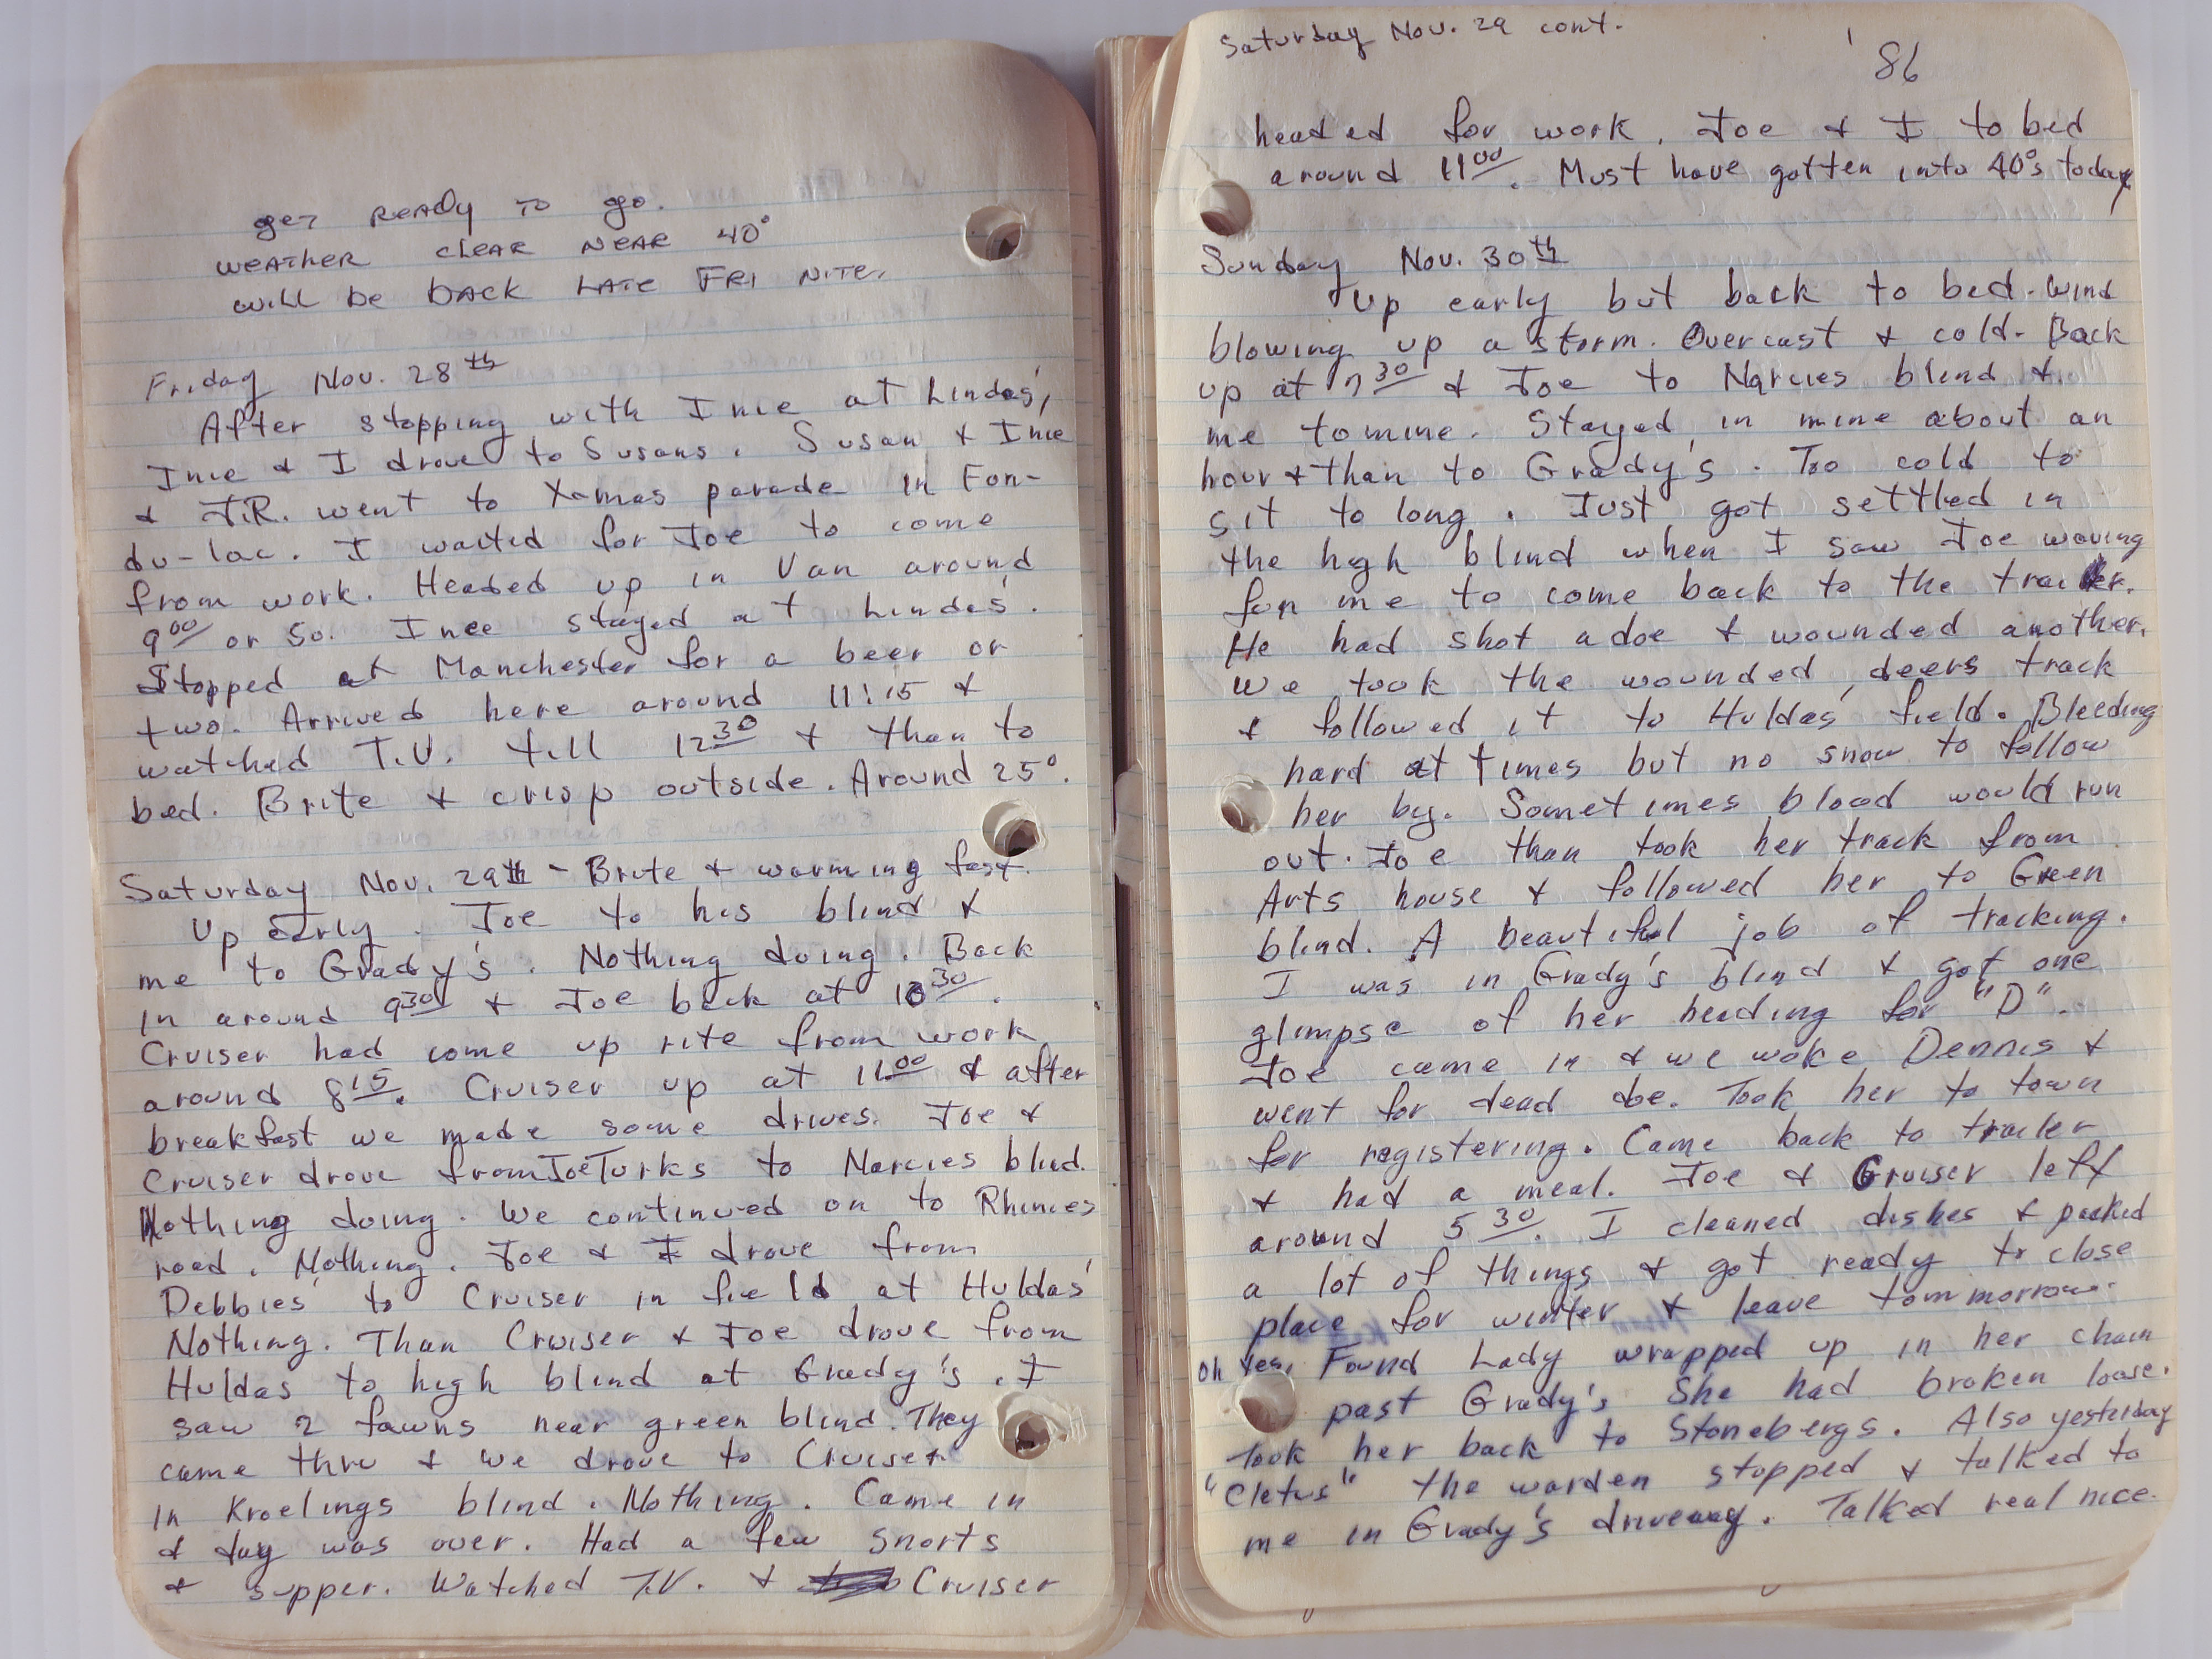 get READy TO go.
WEATHER CLEAR NEAR 40°
will be back LATE FRI NITE.
Friday Nov. 28th
After stopping with Inie at Lindas',
Inie & I drove to Susans. Susan & Inie
& J.R. went to X-mas parade in Fon-
du-lac. I waited for Joe to come
from work. Headed up in Van around
900 or so. Inee stayed at Lindas'.
Stopped at Manchester for a beer or
two. Arrived here around 11:15 &
watched T.V. till 1230 & than to
bed. Brite & crisp outside. Around 25°.
Saturday Nov. 29th - Brite & warming fast.
Up early. Joe to his blind &
me to Grady's. Nothing doing. Back
in around 930 & Joe back at 1030.
Cruiser had come up rite from work
around 815. Cruiser up at 1100 & after
breakfast we made some drives. Joe &
Cruiser drove from Joe Turks to Narcies blind.
Nothing doing. We continued on to Rhinies
road. Nothing. Joe & I drove from
Debbies' to Cruiser in field at Huldas'
Nothing. Than Cruiser & Joe drove from
Huldas to high blind at Grady's. I
saw 2 fawns near green blind. They
came thru & we drove to Cruiser
in Kroelings blind. Nothing. Came in
& day was over. Had a few snorts
& supper. Watched T.V. & Cruiser
Saturday Nov. 29 cont.
'86
headed for work. Joe & I to bed
around 1100. Must have gotten into 40°s today
Sunday Nov. 30th
Up early but back to bed. Wind
blowing up a storm. Overcast & cold. Back
up at 730 & Joe to Narcies blind &
me to mine. Stayed in mine about an
hour & than to Grady's. Too cold to
sit to long. Just got settled in
the high blind when I saw Joe waving
for me to come back to the trailer.
He had shot a doe & wounded another.
We took the wounded deers track
& followed it to Huldas' field. Bleeding
hard at times but no snow to follow
her by. Sometimes blood would run
out. Joe than took her track from
Arts house & followed her to Green
blind. A beautiful job of tracking.
I was in Grady's blind & got one
glimpse of her heading for "D".
Joe came in & we woke Dennis &
went for dead doe. Took her to town
for registering. Came back to trailer
& had a meal. Joe & Cruiser left
around 530. I cleaned dishes & packed
a lot of things & got ready to close
place for winter & leave tommorrow.
Oh yes, Found Lady wrapped up in her chain
past Grady's. She had broken loose.
Took her back to Stonebergs. Also yesterday
"Cletus" the warden stopped & talked to
me in Grady's driveway. Talked real nice.